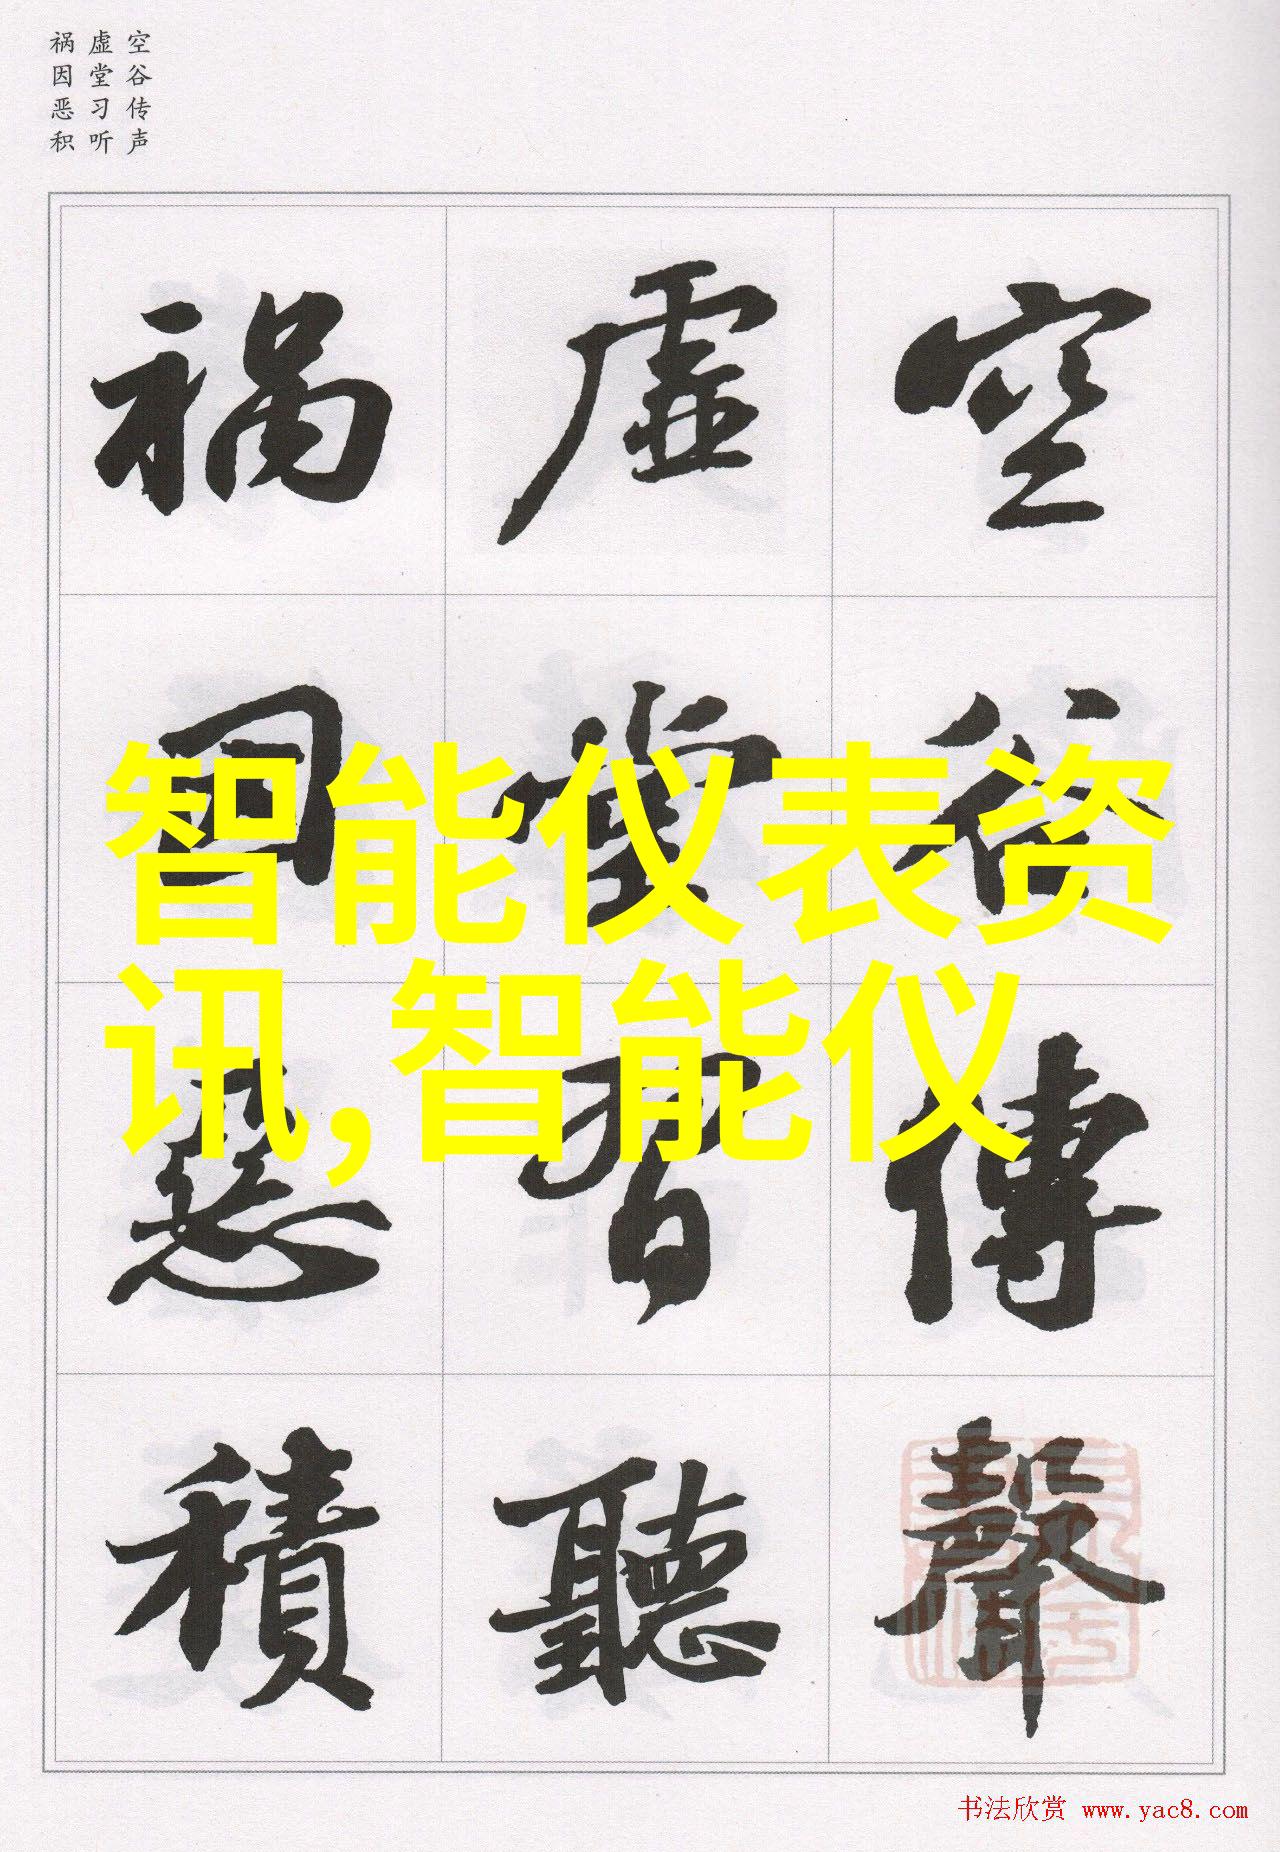 空谷传声
虚堂习听
祸因恶积
空谷傳聲
虚堂習聽
禍因惡積
智能仪表资
讯,智能仪
书法欣赏 www.yac8.com